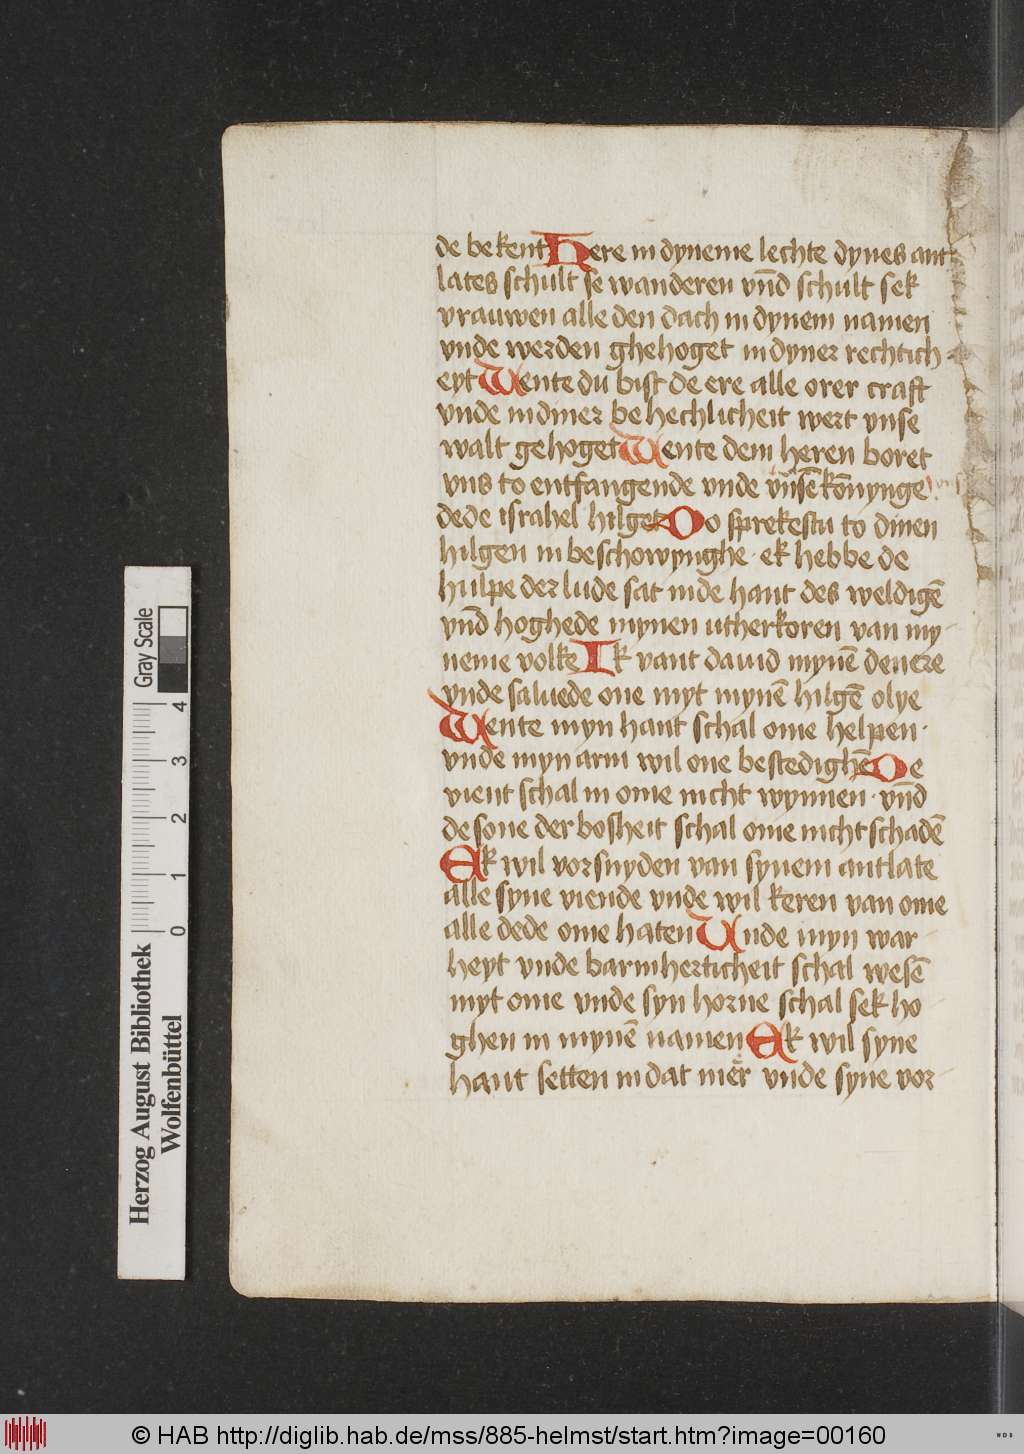 de bekent Here in dyneme lechte dynes ant
lates schult se wanderen vn̄d schult sek
vrauwen alle den dach in dynem namen
vnde werden ghehoget in dyner rechtich
eyt Wente du bist de ere alle orer craft
vnde in diner behechlicheit wert vnse
walt gehoget Wente dem heren boret
vns to entfangende vnde vn̄sē kōnynge
dede israhel hilget Do sprekestu to dinen
hilgen in beschowynghe · ek hebbe de
hulpe der lude sat in de hant des weldigē
vn̄d hoghede mynen utherkoren van my
neme volke Ik vant dauid mynē denere
vnde saluede one myt mynē hilgē olye
Wente myn hant schal ome helpen ·
vnde myn arm wil one bestedighē De
vient schal in ome nicht wynnen · vn̄d
de sone der bosheit schal ome nicht schadē
Ek wil vorsnyden van synem antlate
alle syne viende vnde wil keren van ome
alle dede ome haten Unde myn war
heyt vnde barmherticheit schal wesē
myt ome vnde syn horne schal sek ho
ghen in mynē namen Ek wil syne
hant setten in dat mer vnde syne vor
Herzog August Bibliothek
Wolfenbüttel
Gray Scale
0 1 2 3 4
© HAB http://diglib.hab.de/mss/885-helmst/start.htm?image=00160